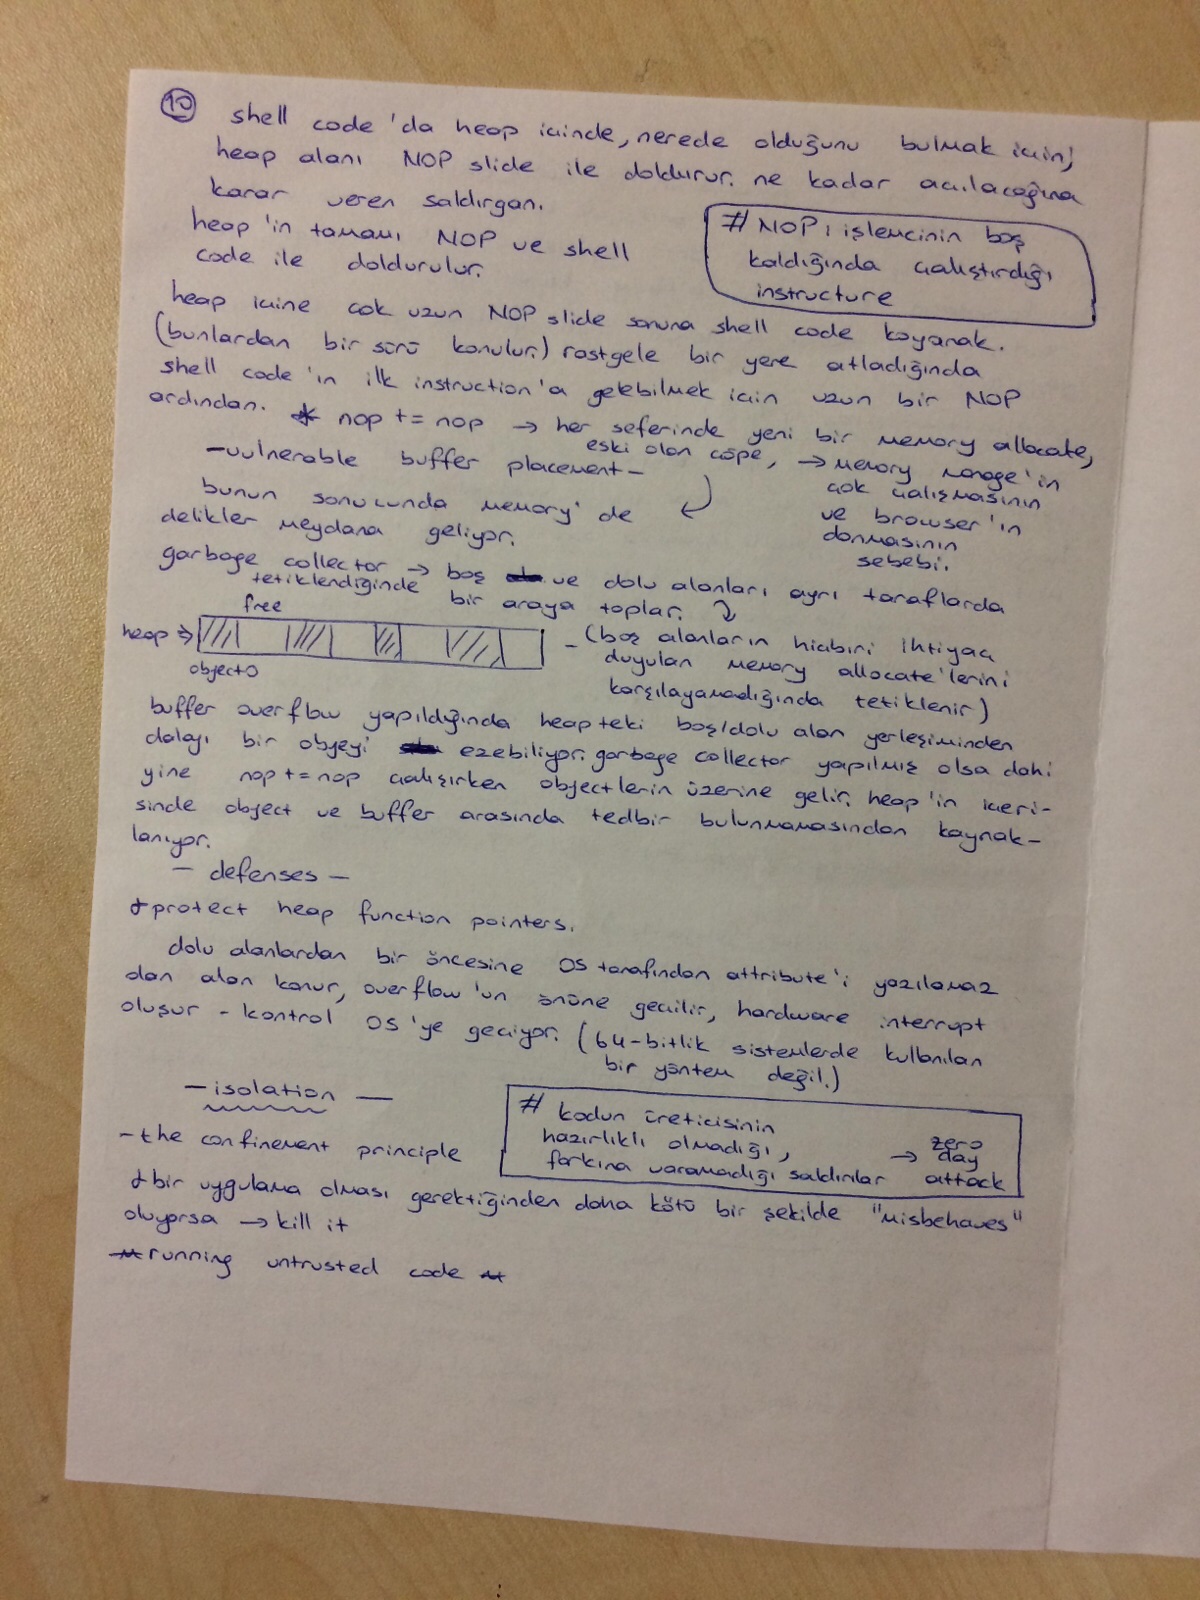 10
shell code'da heap içinde, nerede olduğunu bulmak için;
heap alanı NOP slide ile doldurur. ne kadar açılacağına
karar veren saldırgan.
heap'in tamamı NOP ve shell
code ile doldurulur.
# NOP: işlemcinin boş
kaldığında çalıştırdığı
instructure
heap içine çok uzun NOP slide sonuna shell code koyarak.
(bunlardan bir sürü konulur.) rastgele bir yere atladığında
shell code'ın ilk instruction'a gelebilmek için uzun bir NOP
ardından. * nop += nop → her seferinde yeni bir memory allocate,
eski olan çöpe, → memory manage'in
çok çalışmasının
ve browser'ın
donmasının
sebebi.
- vulnerable buffer placement -
bunun sonucunda memory'de
delikler meydana geliyor.
garbage collector → boş ve dolu alanları ayrı taraflarda
tetiklendiğinde bir araya toplar.
free
heap →
objects
- (boş alanların hiçbiri ihtiyaç
duyulan memory allocate'lerini
karşılayamadığında tetiklenir)
buffer overflow yapıldığında heapteki boş/dolu alan yerleşiminden
dolayı bir objeyi ezebiliyor. garbage collector yapılmış olsa dahi
yine nop += nop çalışırken objectlerin üzerine gelir. heap'in içeri-
sinde object ve buffer arasında tedbir bulunmamasından kaynak-
lanıyor.
- defenses -
* protect heap function pointers.
dolu alanlardan bir öncesine OS tarafından attribute'i yazılamaz
olan alan konur, overflow'un önüne geçilir, hardware interrupt
oluşur - kontrol OS'ye geçiyor. (64-bitlik sistemlerde kullanılan
bir yöntem değil.)
- isolation -
# kodun üreticisinin
hazırlıklı olmadığı,
farkına varamadığı saldırılar → zero
day
attack
- the confinement principle
* bir uygulama olması gerektiğinden daha kötü bir şekilde "misbehaves"
oluyorsa → kill it
* running untrusted code *